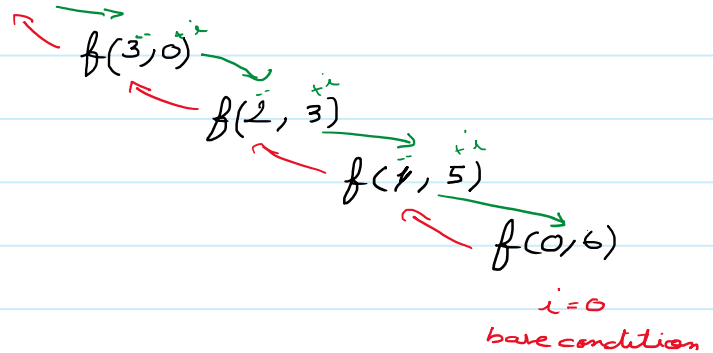 f(3, 0)
-- +i
f(2, 3)
-- +i
f(1, 5)
-- +i
f(0, 6)
i = 0
base condition